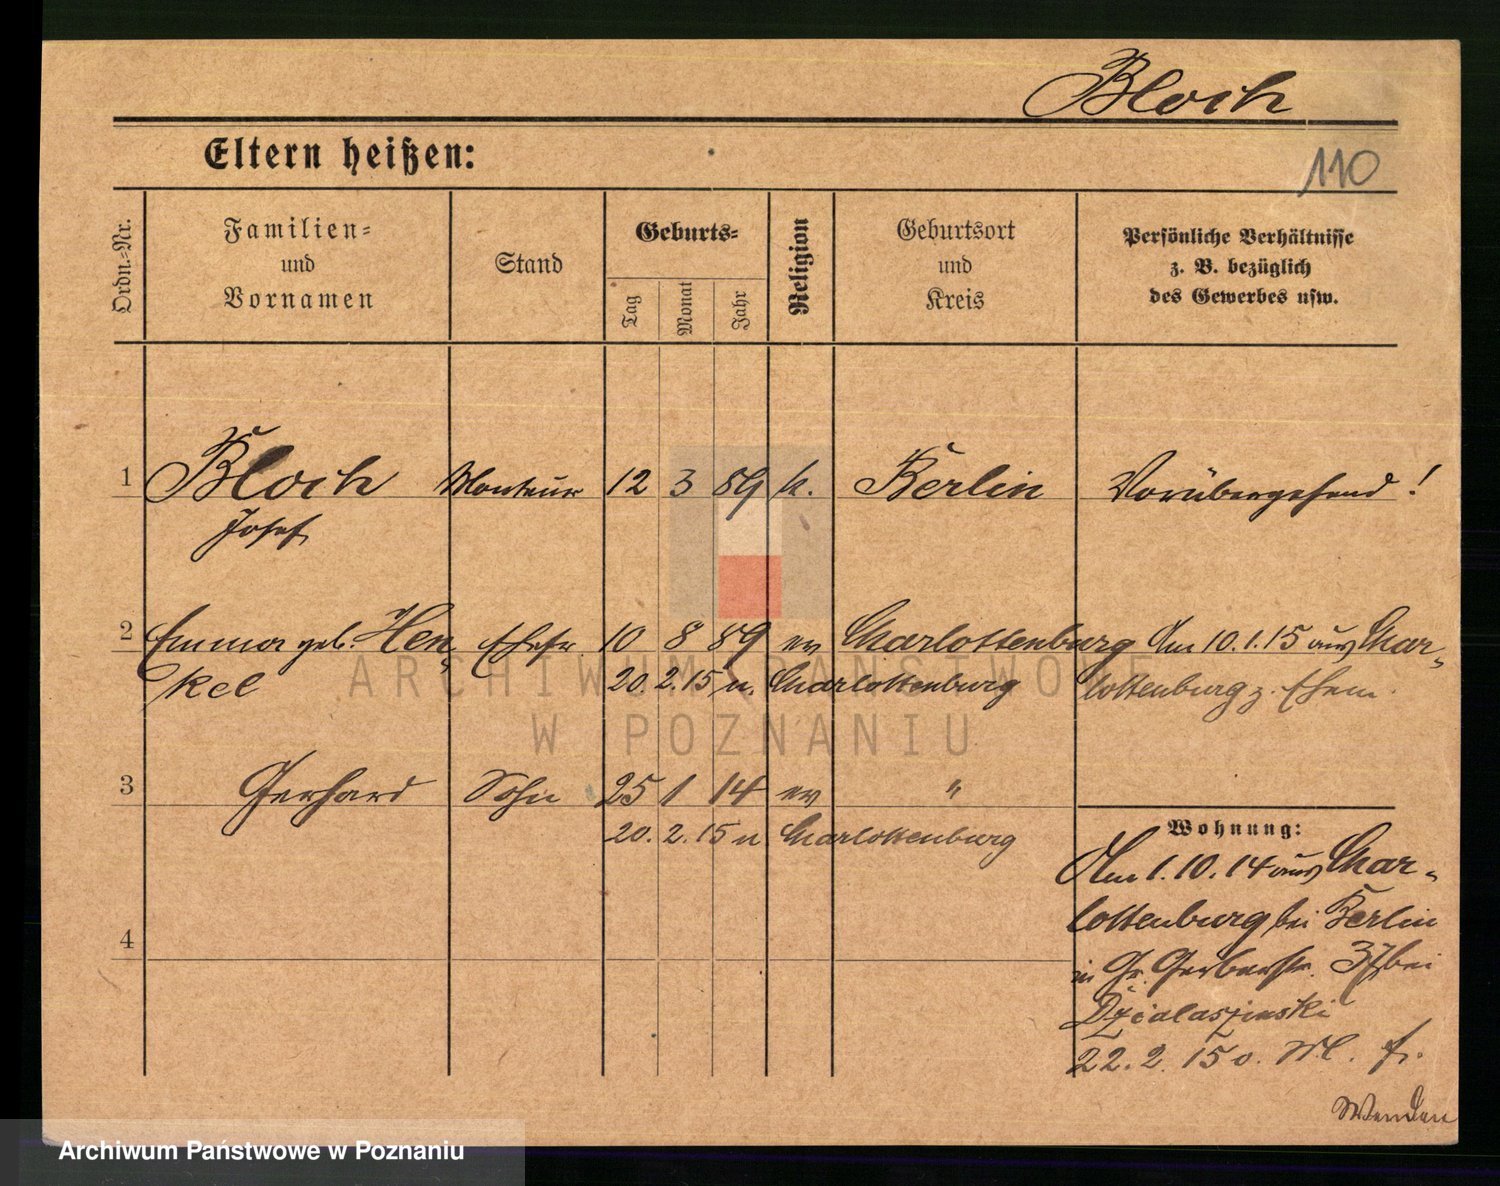 Bloch
Eltern heißen:
110
Ordn.-Nr.
Familien-
und
Vornamen
Stand
Geburts-
Tag
Monat
Jahr
Religion
Geburtsort
und
Kreis
Persönliche Verhältnisse
z. B. bezüglich
des Gewerbes usw.
1 Bloch Monteur 12 3 89 k. Berlin Vorübergehend!
Josef
2 Emma geb. Hen- Ehefr. 10 8 89 ev Charlottenburg Am 10.1.15 aus Char-
kel 20. 2. 15 n. Charlottenburg lottenburg z. Ehem.
3 Gerhard Sohn 25 1 14 ev "
20. 2. 15 n Charlottenburg
Wohnung:
Am 1. 10. 14 aus Char-
lottenburg bei Berlin
4
in Gr. Gerberstr. 37 bei
Dzialaszinski
22. 2. 15 o. M. f.
Wenden
ARCHIWUM PAŃSTWOWE
W POZNANIU
Archiwum Państwowe w Poznaniu